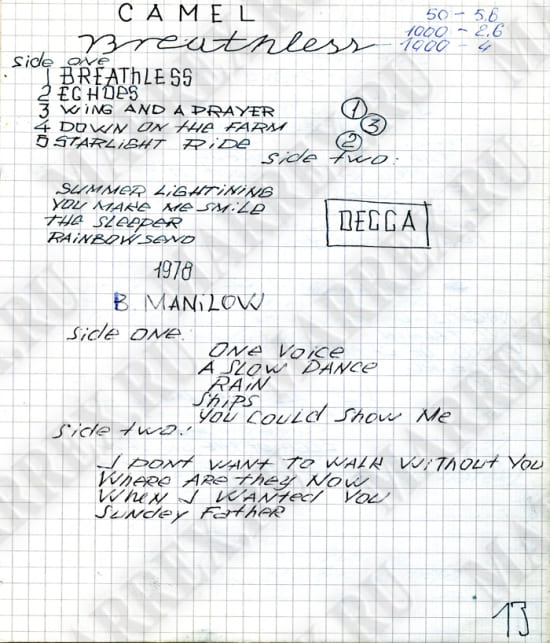 CAMEL
Breathless
50 - 5.6
1000 - 2.6
1000 - 4
side one
1 BREATHLESS
2 ECHOES
3 WING AND A PRAYER
4 DOWN ON the FARM
5 STARLIGHT RIDE
1
3
2
side two:
SUMMER LIGHTINING
YOU MAKE ME SMILE
THE SLEEPER
RAINBOWSEND
DECCA
1978
B. MANILOW
side ONE:
ONE VOICE
A SLOW DANCE
RAIN
Ships
YOU COULD Show Me
side two:
I DONT WANT TO WALK WITHOUT YOU
Where ARE they NOW
When I WANTed YOU
SUNDEY Father
13
MARREX.RU